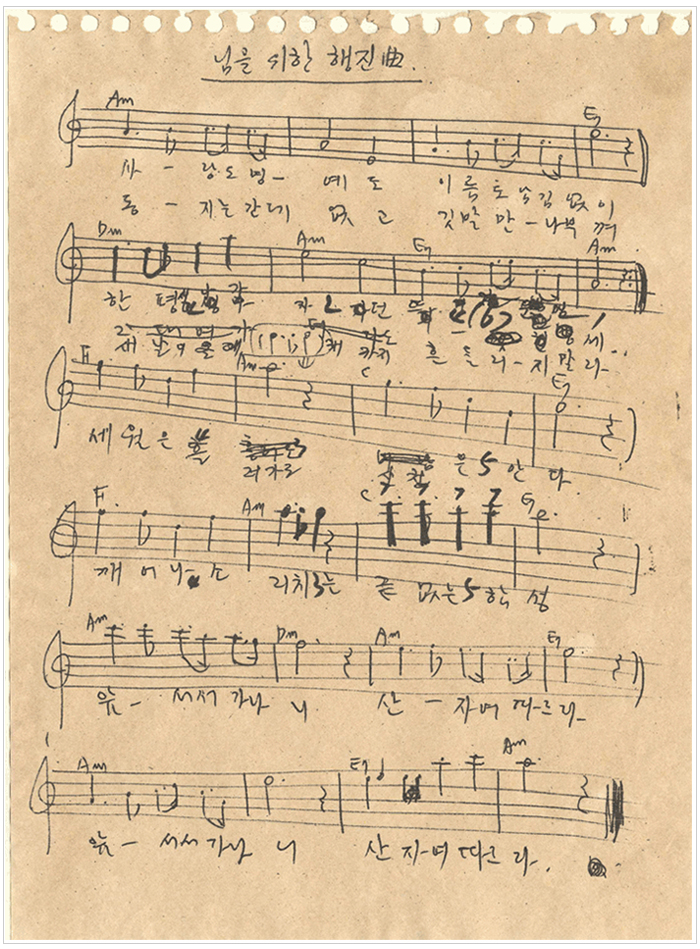 님을 위한 행진曲.
Am E7
사 - 랑도 명- 예 도 이 름 도 남김 없 이
동 - 지는 간데 없 고 깃발 만 - 나부 껴
Dm Am E7 Am
한 평생 나가 자 던 뜨 세
새 날이 올 때 까지 흔 들 리 - 지 말라..
F Am C E7
세 월 은 흘 러가도 산 천 은 안 다
F Am C E7
깨 어 나 소 리치는 끝 없는 함 성
Am Dm Am E7
앞- 서서 가나 니 산 - 자여 따르라-
Am E7 Am
앞- 서서 가나 니 산 자여 따르 라.